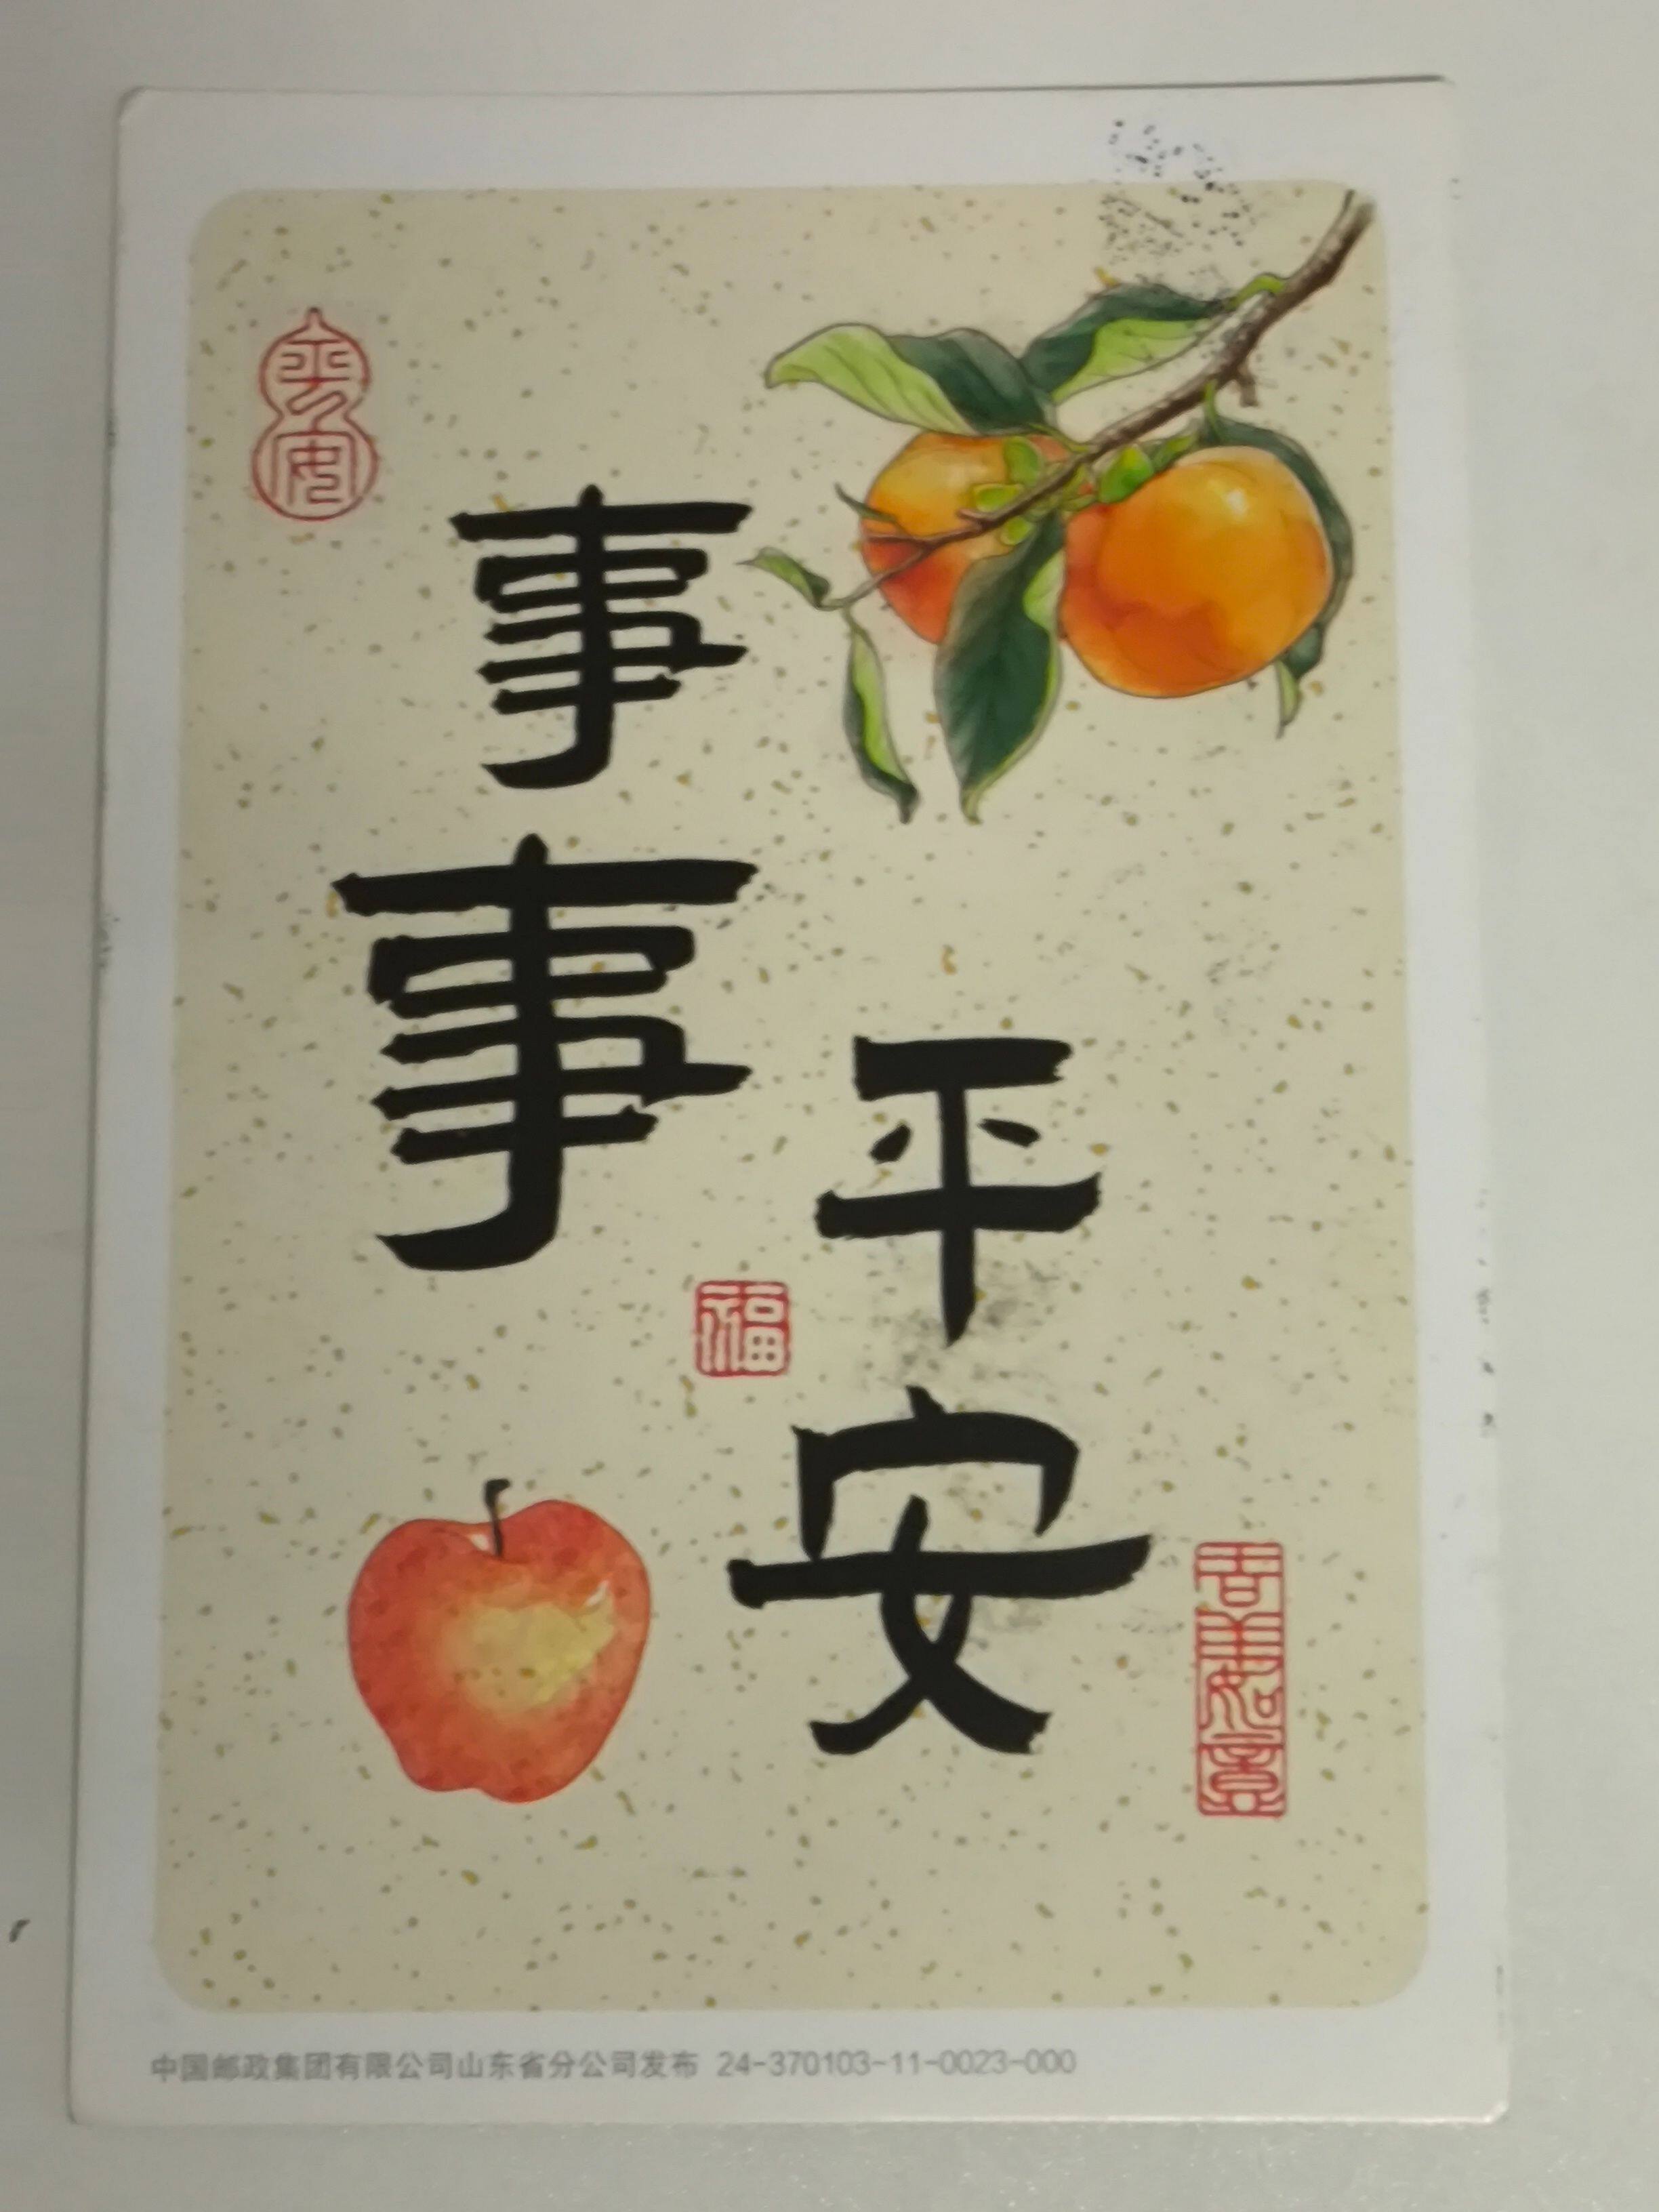 平安
事事
平安
福
吉祥如意
中国邮政集团有限公司山东省分公司发布 24-370103-11-0023-000